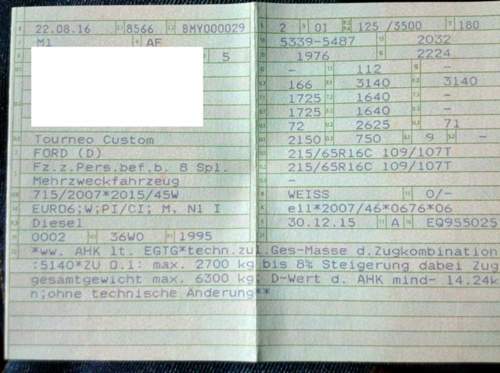 22.08.16 8566 BMY000029
M1 AF
5
Tourneo Custom
FORD (D)
Fz.z.Pers.bef.b. 8 Spl.
Mehrzweckfahrzeug
715/2007*2015/45W
EURO6;W;PI/CI; M, N1 I
Diesel
0002 36W0 1995
2 01 125 /3500 180
5339-5487 2032
1976 2224
- 112 -
166 3140 3140
1725 1640 -
1725 1640 -
72 2625 71
2150 750 9 -
215/65R16C 109/107T
215/65R16C 109/107T
-
WEISS 0/-
e11*2007/46*0676*06
30.12.15 A EQ955025
*ww. AHK lt. EGTG*techn.zul.Ges-Masse d.Zugkombination
:5140*ZU O.1: max. 2700 kg bis 8% Steigerung dabei Zug
gesamtgewicht max. 6300 kg; D-Wert d. AHK mind- 14.24k
n;ohne technische Änderung**